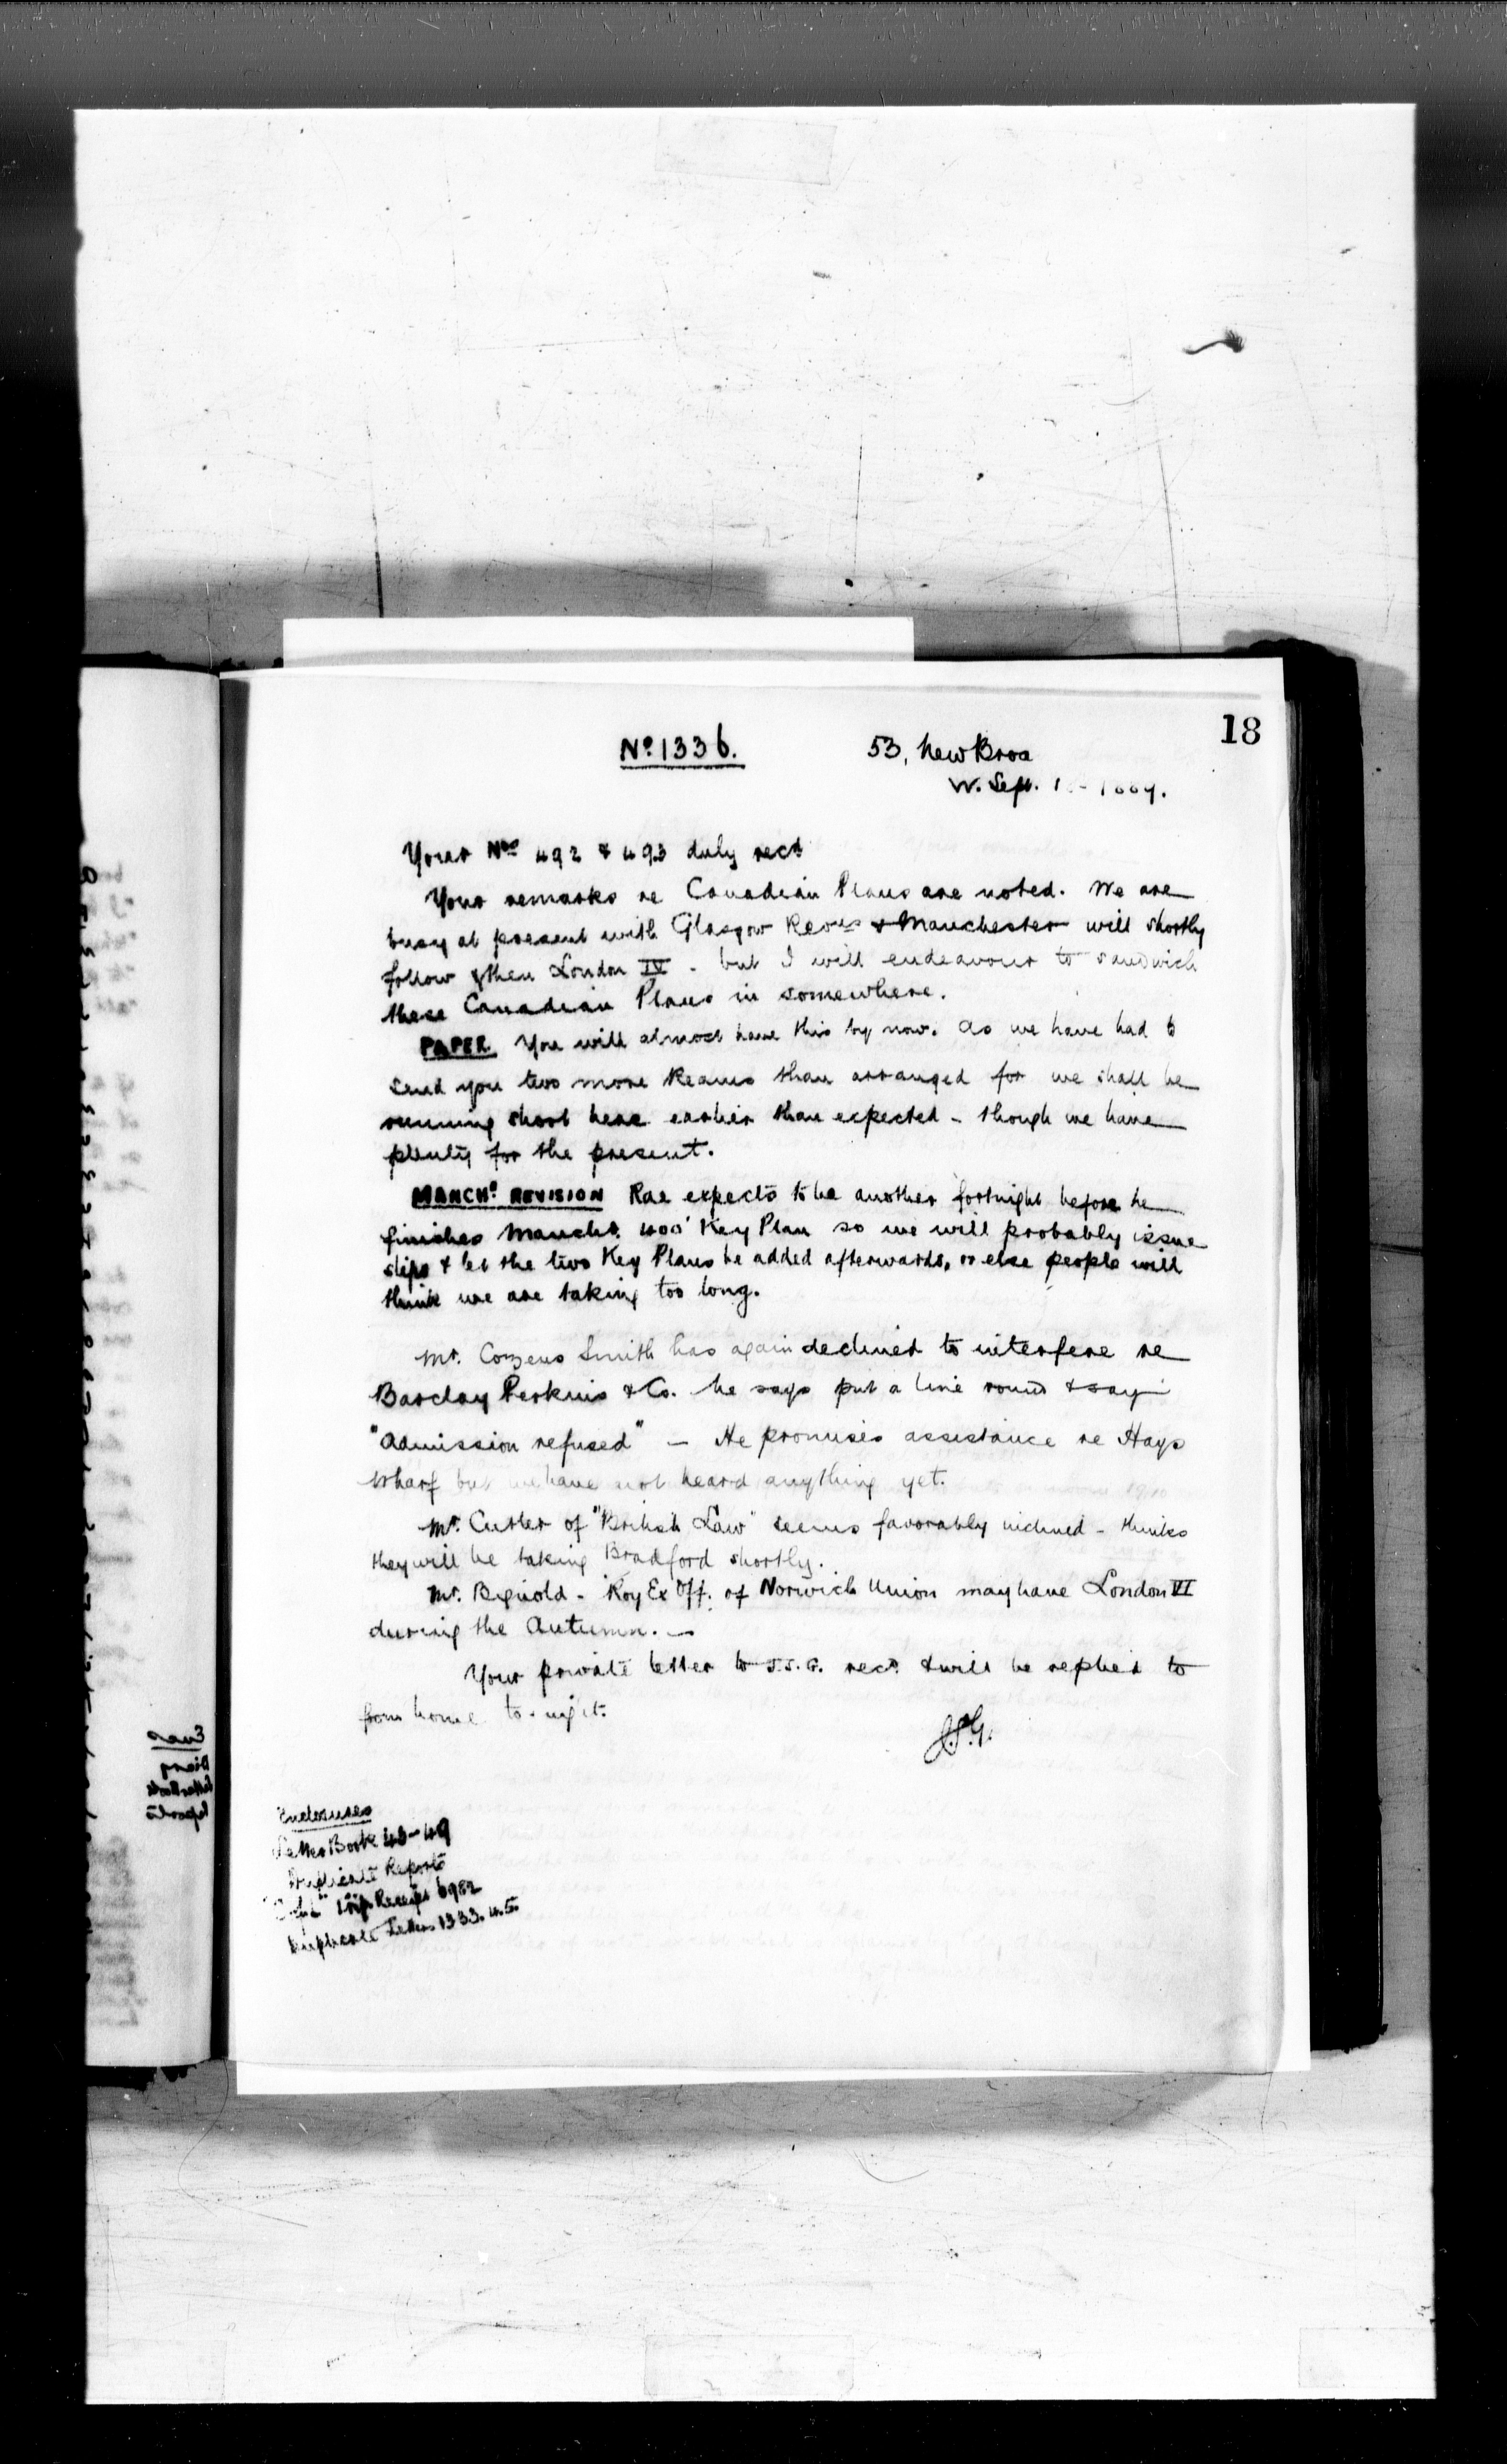 18
Nº 1336.
53, New Broa
W. Sept. 1889.
Your Nos 492 & 493 duly recd
Your remarks re Canadian Plans are noted. We are
busy at present with Glasgow Revns & Manchester will shortly
follow & then London IV - but I will endeavour to sandwich
these Canadian Plans in somewhere.
PAPER. You will almost have this by now. As we have had to
send you two more Reams than arranged for we shall be
running short here earlier than expected - though we have
plenty for the present.
MANCHR REVISION Rae expects to be another fortnight before he
finishes Manchr. 400' Key Plan so we will probably issue
slips & let the two Key Plans be added afterwards, or else people will
think we are taking too long.
Mr. Cozens Smith has again declined to interfere re
Barclay Perkins & Co. he says put a line round & say
"Admission refused" - He promises assistance re Hays
Wharf but we have not heard anything yet.
Mr. Cutler of "British Law" seems favorably inclined - thinks
they will be taking Bradford shortly.
Mr. Bignold - Roy Ex Off. of Norwich Union may have London VI
during the Autumn. -
Your private letter to J.S.G. recd. & will be replied to
from home to-night.
J.S.G.
Enclosures
Letter Book 43-49
Duplicate Reports
Receipt 6982
Duplicate Letters 1333.4.5.